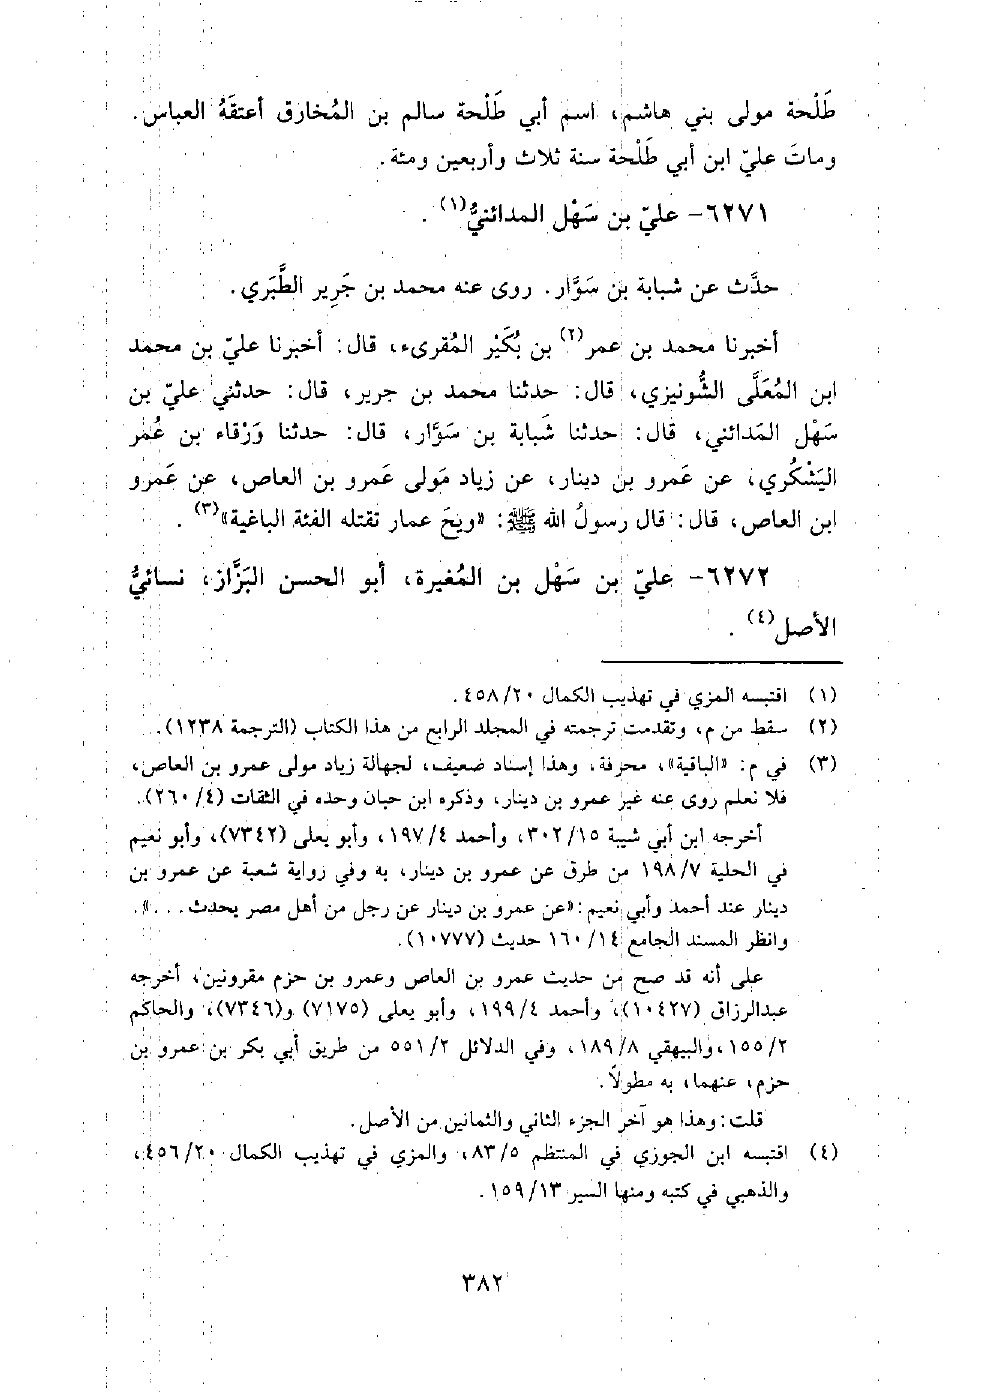 طَلْحة مولى بني هاشم، اسم أبي طَلْحة سالم بن المُخارق أعتقَهُ العباس.
وماتَ عليّ ابن أبي طَلْحة سنة ثلاث وأربعين ومئة.
٦٢٧١- عليّ بن سَهْل المدائنيُّ(١) .
حدَّث عن شبابة بن سَوَّار. روى عنه محمد بن جَرِير الطَّبَري.
أخبرنا محمد بن عمر(٢) بن بُكَيْر المُقرىء، قال: أخبرنا عليّ بن محمد
ابن المُعَلَّى الشُّونيزي، قال: حدثنا محمد بن جرير، قال: حدثني عليّ بن
سَهْل المَدائني، قال: حدثنا شَبابة بن سَوَّار، قال: حدثنا وَرْقاء بن عُمر
اليَشْكُري، عن عَمرو بن دينار، عن زياد مَولى عَمرو بن العاص، عن عَمرو
ابن العاص، قال: قال رسولُ الله ﷺ: «ويحَ عمار تقتله الفئة الباغية»(٣) .
٦٢٧٢- عليّ بن سَهْل بن المُغيرة، أبو الحسن البَزَّاز، نسائيُّ
الأصل(٤) .
(١) اقتبسه المزي في تهذيب الكمال ٤٥٨/٢٠ .
(٢) سقط من م، وتقدمت ترجمته في المجلد الرابع من هذا الكتاب (الترجمة ١٢٣٨).
(٣) في م: «الباقية»، محرفة، وهذا إسناد ضعيف، لجهالة زياد مولى عمرو بن العاص،
فلا نعلم روى عنه غير عمرو بن دينار، وذكره ابن حبان وحده في الثقات (٤/ ٢٦٠).
أخرجه ابن أبي شيبة ٣٠٢/١٥، وأحمد ١٩٧/٤، وأبو يعلى (٧٣٤٢)، وأبو نعيم
في الحلية ١٩٨/٧ من طرق عن عمرو بن دينار، به وفي رواية شعبة عن عمرو بن
دينار عند أحمد وأبي نعيم: «عن عمرو بن دينار عن رجل من أهل مصر يحدث . . .».
وانظر المسند الجامع ١٤/ ١٦٠ حديث (١٠٧٧٧).
على أنه قد صح من حديث عمرو بن العاص وعمرو بن حزم مقرونين، أخرجه
عبدالرزاق (١٠٤٢٧)، وأحمد ١٩٩/٤، وأبو يعلى (٧١٧٥) و(٧٣٤٦)، والحاكم
١٥٥/٢، والبيهقي ١٨٩/٨، وفي الدلائل ٥٥١/٢ من طريق أبي بكر بن عمرو بن
حزم، عنهما، به مطولًا.
قلت: وهذا هو آخر الجزء الثاني والثمانين من الأصل.
(٤) اقتبسه ابن الجوزي في المنتظم ٨٣/٥، والمزي في تهذيب الكمال ٤٥٦/٢٠،
والذهبي في كتبه ومنها السير ١٥٩/١٣ .
٣٨٢